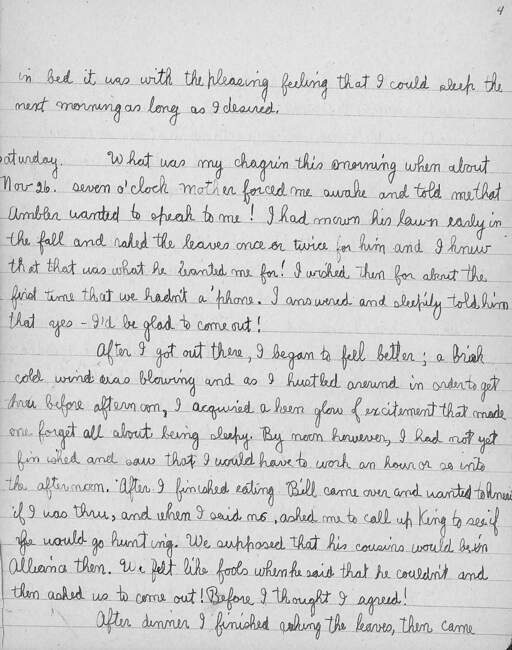 4
in bed it was with the pleasing feeling that I could sleep the
next morning as long as I desired.
Saturday. What was my chagrin this morning when about
Nov 26. seven o'clock mother forced me awake and told me that
Ambler wanted to speak to me! I had mown his lawn early in
the fall and raked the leaves once or twice for him and I knew
that that was what he wanted me for! I wished then for about the
first time that we hadn't a 'phone. I answered and sleepily told him
that yes - I'd be glad to come out!
After I got out there, I began to feel better; a brisk
cold wind was blowing and as I hustled around in order to get
thru before afternoon, I acquired a keen glow of excitement that made
one forget all about being sleepy. By noon however, I had not yet
finished and saw that I would have to work an hour or so into
the afternoon. After I finished eating Bill came over and wanted to know
if I was thru, and when I said no, asked me to call up King to see if
he would go hunting. We supposed that his cousins would be in
Alliance then. We felt like fools when he said that he couldn't and
then asked us to come out! Before I thought I agreed!
After dinner I finished raking the leaves, then came